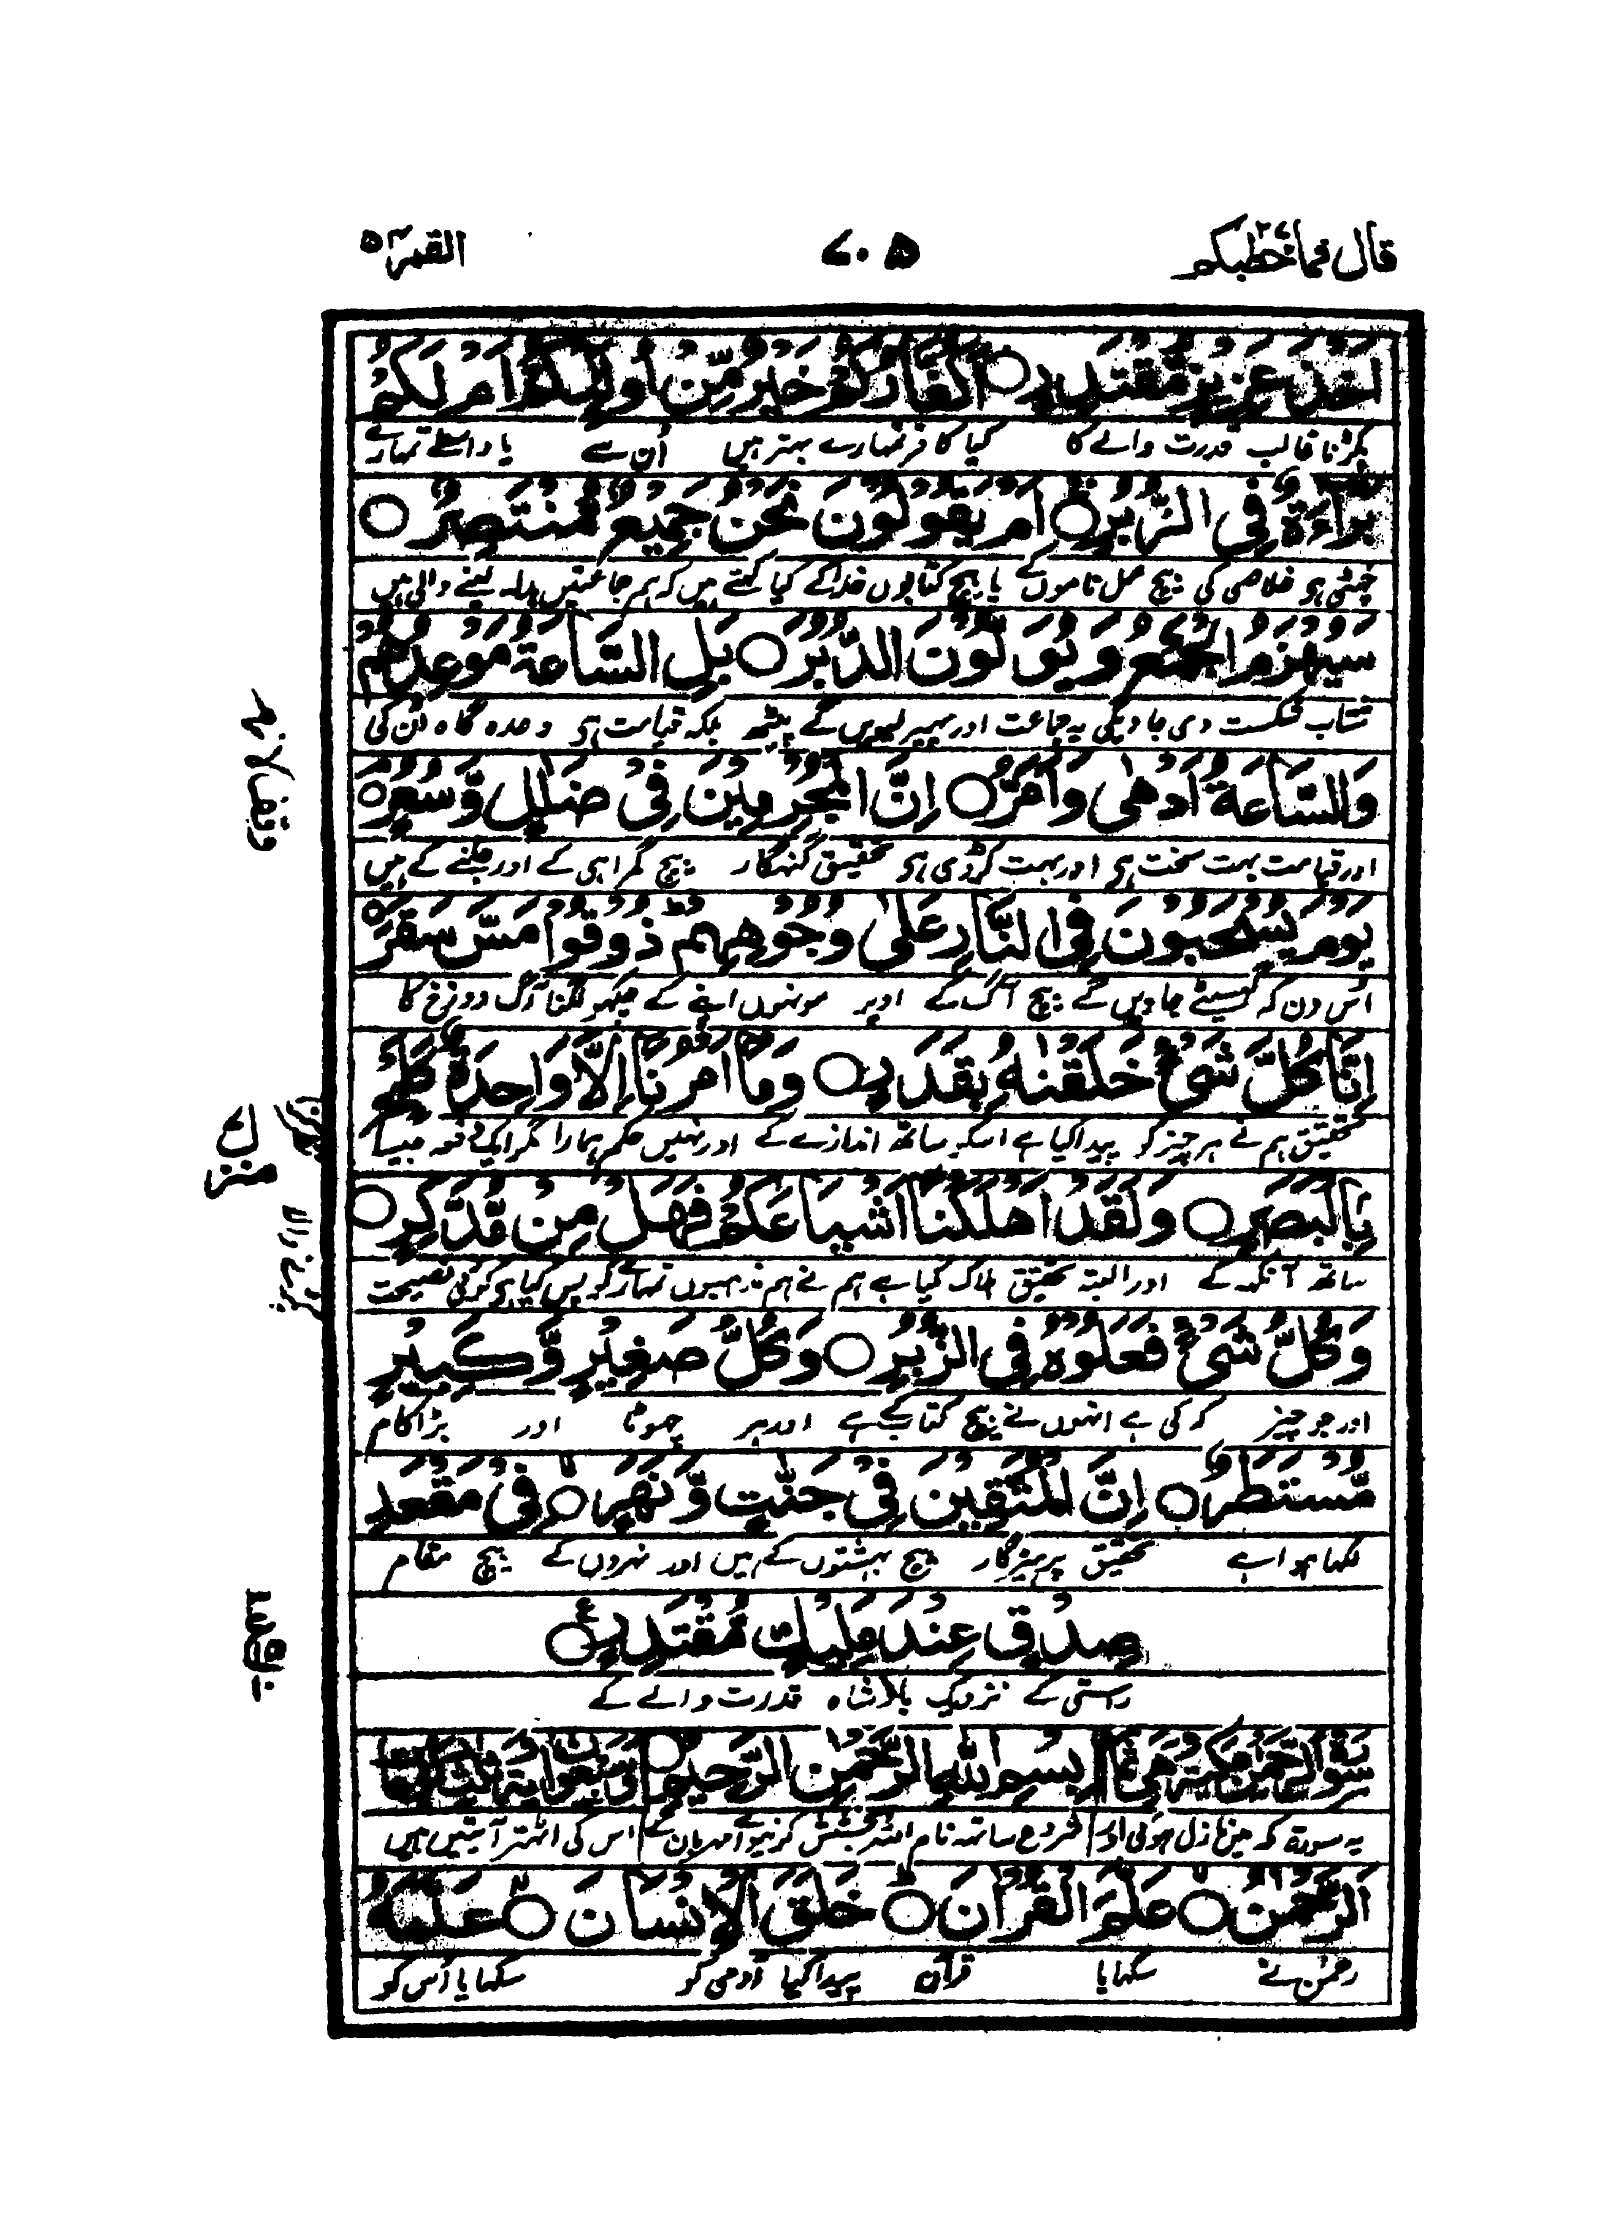 قال فما خطبکم ۲۷
۷۰۵
القمر ۵۴
اَخْذَ عَزِيْزٍ مُّقْتَدِرٍ ○ اَكُفَّارُكُمْ خَيْرٌ مِّنْ اُولٰٓئِكُمْ اَمْ لَكُمْ
پکڑنا غالب قدرت والے کا کیا کافر تمہارے بہتر ہیں اُن سے یا واسطے تمہارے
بَرَآءَةٌ فِي الزُّبُرِ ○ اَمْ يَقُوْلُوْنَ نَحْنُ جَمِيْعٌ مُّنْتَصِرٌ ○
چٹھی ہو خلاصی کی بیچ عمل ناموں کے یا بیچ کتابوں خدا کے کیا کہتے ہیں کہ ہم جماعتیں بدلہ لینے والی ہیں
سَيُهْزَمُ الْجَمْعُ وَيُوَلُّوْنَ الدُّبُرَ ○ بَلِ السَّاعَةُ مَوْعِدُهُمْ
شتاب شکست دی جاویگی یہ جماعت اور پھیر لیویں گے پیٹھ بلکہ قیامت ہی وعدہ گاہ اُن کی
وَالسَّاعَةُ اَدْهٰى وَاَمَرُّ ○ اِنَّ الْمُجْرِمِيْنَ فِيْ ضَلٰلٍ وَّسُعُرٍ ○
اور قیامت بہت سخت ہی اور بہت کڑوی ہی تحقیق گنہگار بیچ گمراہی کے اور جلنے کے ہیں
يَوْمَ يُسْحَبُوْنَ فِي النَّارِ عَلٰى وُجُوْهِهِمْ ذُوْقُوْا مَسَّ سَقَرَ ○
اُس دن کہ گھسیٹے جاویں گے بیچ آگ کے اوپر مونہوں اپنے کے چکھو لگنا آگ دوزخ کا
اِنَّا كُلَّ شَيْءٍ خَلَقْنٰهُ بِقَدَرٍ ○ وَمَآ اَمْرُنَآ اِلَّا وَاحِدَةٌ كَلَمْحٍ
تحقیق ہم نے ہر چیز کو پیدا کیا ہے اسکو ساتھ اندازے کے اور نہیں حکم ہمارا مگر ایک دفعہ جیسا
بِالْبَصَرِ ○ وَلَقَدْ اَهْلَكْنَآ اَشْيَاعَكُمْ فَهَلْ مِنْ مُّدَّكِرٍ ○
ساتھ آنکھ کے اور البتہ تحقیق ہلاک کیا ہے ہم نے ہم مذہبوں تمہارے کو پس کیا ہی کوئی نصیحت
وَكُلُّ شَيْءٍ فَعَلُوْهُ فِي الزُّبُرِ ○ وَكُلُّ صَغِيْرٍ وَّكَبِيْرٍ
اور جو چیز کہ کی ہے انہوں نے بیچ کتاب کے ہے اور ہر چھوٹا اور بڑا کام
مُّسْتَطَرٌ ○ اِنَّ الْمُتَّقِيْنَ فِيْ جَنّٰتٍ وَّنَهَرٍ ○ فِيْ مَقْعَدِ
لکھا ہوا ہے تحقیق پرہیزگار بیچ بہشتوں کے ہیں اور نہروں کے بیچ مقام
صِدْقٍ عِنْدَ مَلِيْكٍ مُّقْتَدِرٍ ○
راستی کے نزدیک بادشاہ قدرت والے کے
سُوْرَةُ الرَّحْمٰنِ بِسْمِ اللّٰهِ الرَّحْمٰنِ الرَّحِيْمِ ○
یہ سورۃ کہ میں نازل ہوئی شروع ساتھ نام اللہ بخشش کرنیوالے مہربان کے اس کی اٹھتر آیتیں ہیں
اَلرَّحْمٰنُ ○ عَلَّمَ الْقُرْاٰنَ ○ خَلَقَ الْاِنْسَانَ ○ عَلَّمَهُ
رحمٰن نے سکھایا قرآن پیدا کیا آدمی کو سکھایا اُس کو
وقف لازم
منزل ۷